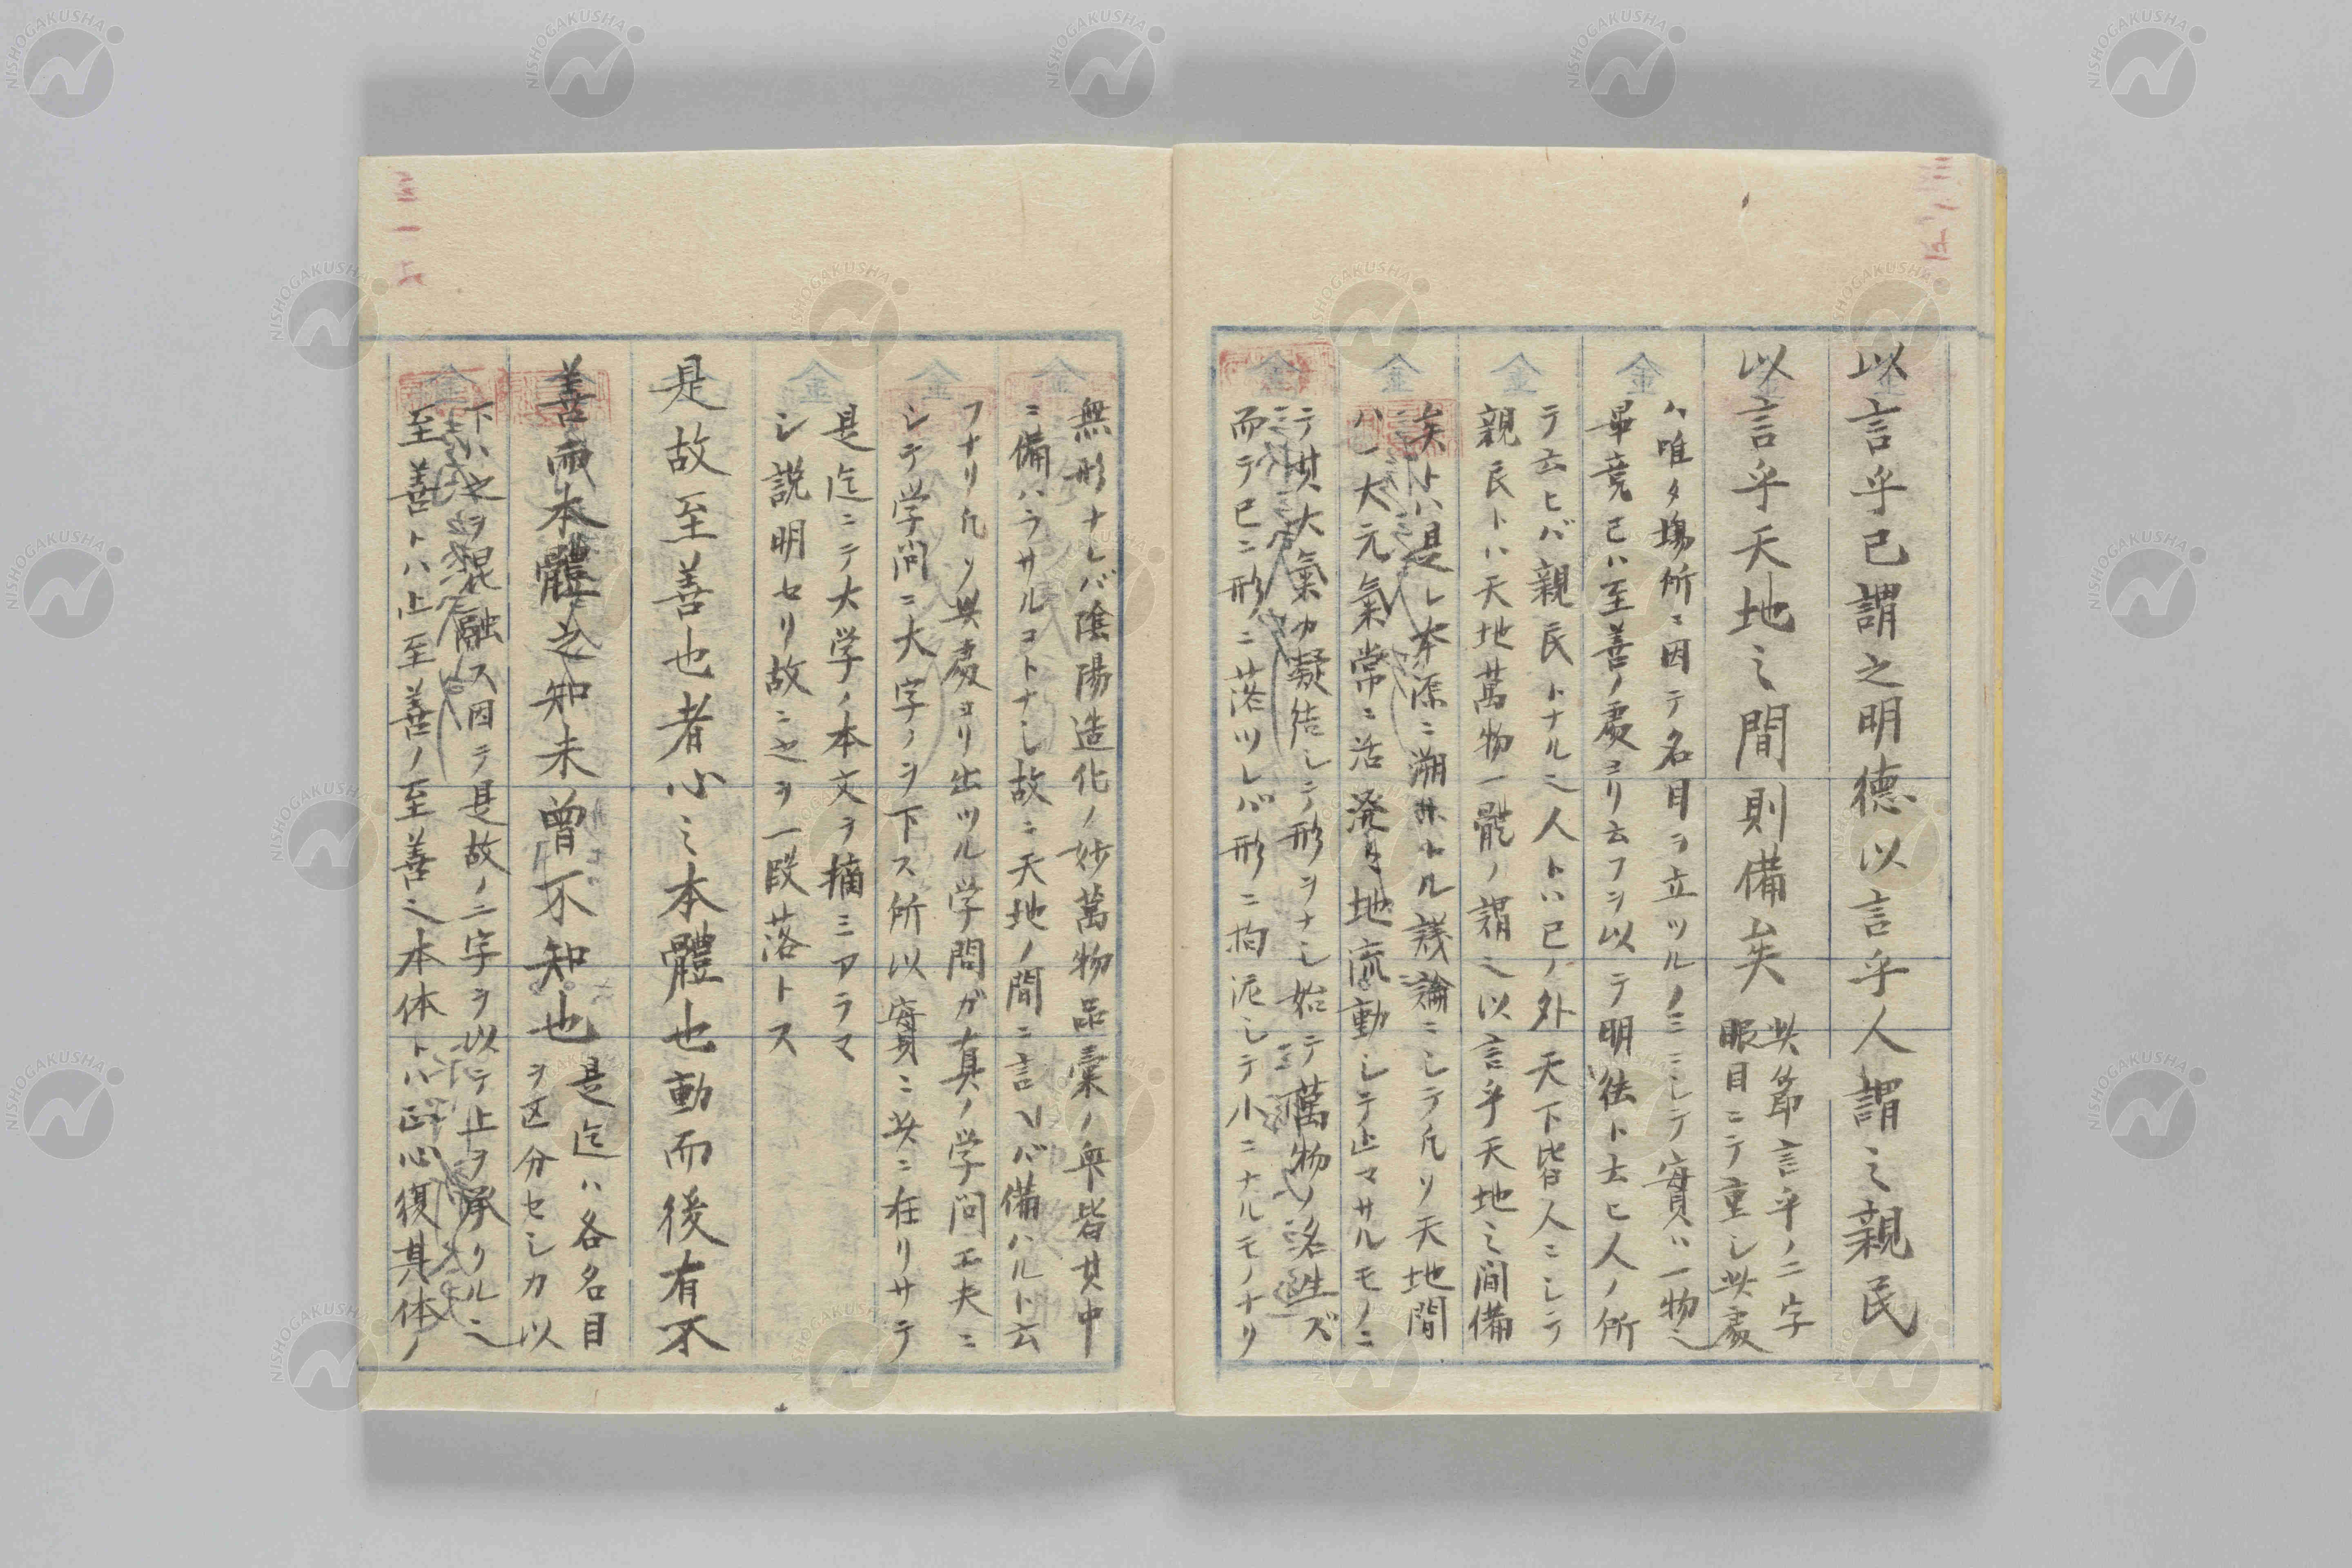 以言乎己謂之明德以言乎人謂之親民
以言乎天地之間則備矣
此節言乎ノ二字
眼目ニテ重シ此處
ハ唯タ塲所ニ因テ名目ヲ立ツルノミニシテ實ハ一物也
畢竟己ハ至善ノ處ヨリ云フヲ以テ明德ト云ヒ人ノ所
テ云ヒバ親民トナル也人トハ己ノ外天下皆人ニシテ
親民トハ天地萬物一體ノ謂也以言乎天地之間備
矣トハ是レ本源ニ溯リタル議論ニシテ凡ソ天地間
ハ一大元氣常ニ活潑々地流動シテ止マサルモノニ
テ其大氣カ凝結シテ形ヲナシ始テ萬物ノ名生ズ
而テ已ニ形ニ落ツレバ形ニ拘泥シテ小ニナルモノナリ
無形ナレバ陰陽造化ノ妙萬物品彙ノ無皆其中
ニ備ハラサルコトナシ故ニ天地ノ間ニ言ヘバ備ハルト云
フナリ凡ソ此處ヨリ出ツル学問ガ真ノ学問工夫ニ
シテ学問ニ大字ノヲ下ス所以實ニ此ニ在リサテ
是迄ニテ大学ノ本文ヲ摘ミアラマ
シ説明セリ故ニ之ヲ一段落トス
是故至善也者心之本體也動而後有不
善而本體之知未曾不知也
是迄ハ各名目
ヲ区分セシカ以
下ハ之ヲ混融ス因テ是故ノ二字ヲ以テ上ヲ承クル也
至善トハ止至善ノ至善也本体トハ正心復其体ノ